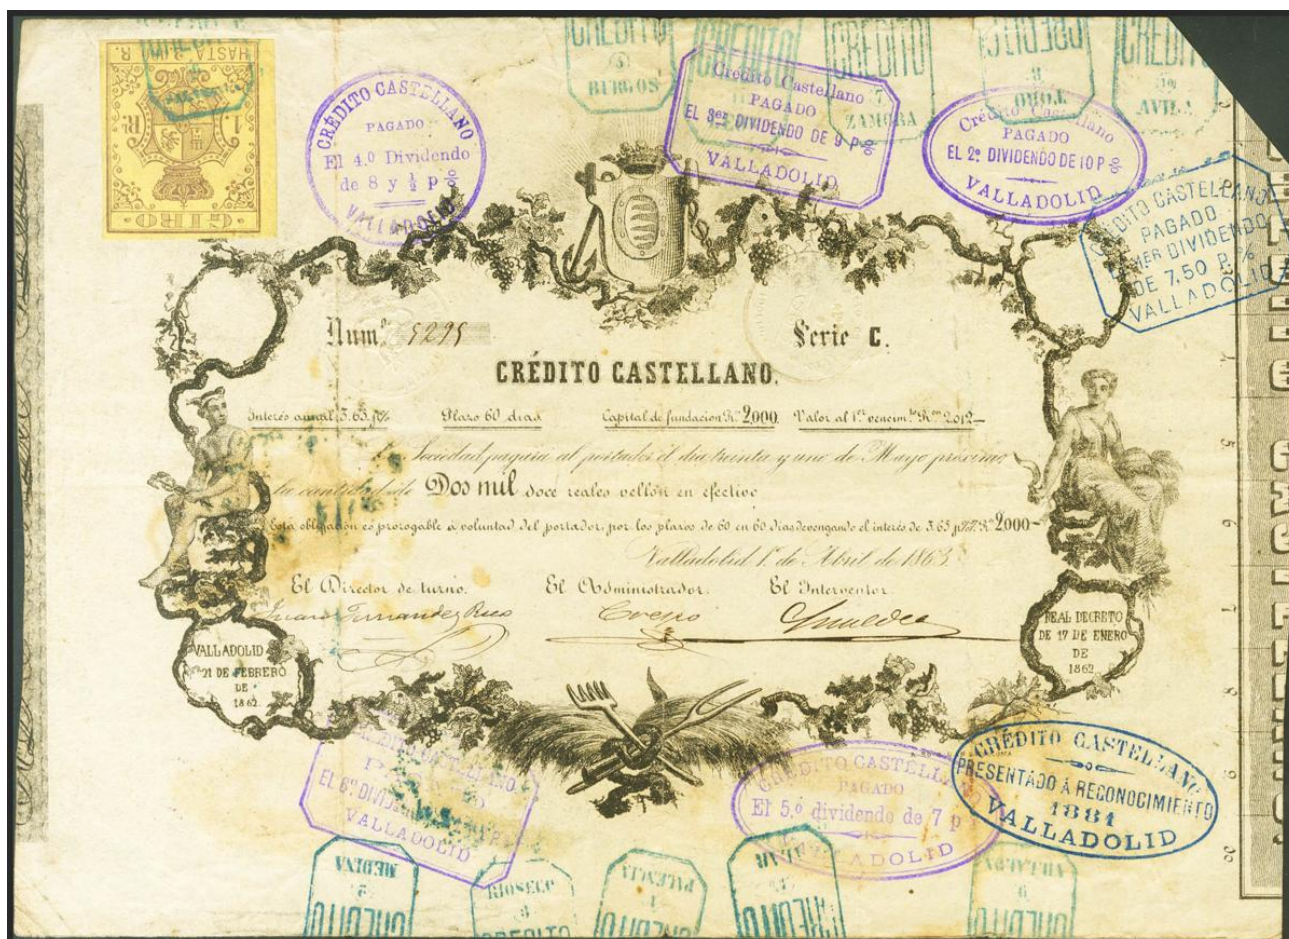 HASTA 2 R.
1 Rl.
GIRO
CRÉDITO CASTELLANO
PAGADO
El 4.º Dividendo
de 8 y ½ p %
VALLADOLID
CREDITO
BURGOS
Crédito Castellano
PAGADO
EL 3er DIVIDENDO DE 9 P %
VALLADOLID
CREDITO
ZAMORA
CREDITO
8
TORO
CREDITO
AVILA
Crédito Castellano
PAGADO
EL 2º DIVIDENDO DE 10 P %
VALLADOLID
CRÉDITO CASTELLANO
PAGADO
DIVIDENDO
DE 7,50 P %
VALLADOLID
Numº 5295
Serie C.
CRÉDITO CASTELLANO.
Interés anual 3.65 p%. Plazo 60 dias Capital de fundacion Rn 2,000 Valor al 1er vencimto Rson 2.012
La Sociedad pagará al portador el dia treinta y uno de Mayo próximo
la cantidad de Dos mil doce reales vellón en efectivo
Esta obligación es prorogable a voluntad del portador, por los plazos de 60 en 60 dias devengando el interés de 3.65 p% 2000
Valladolid 1º de Abril de 1863.
El Director de turno. El Administrador. El Interventor.
VALLADOLID
21 DE FEBRERO
DE
1862.
REAL DECRETO
DE 17 DE ENERO
DE
1862
CRÉDITO CASTELLANO
EL 6º DIVIDENDO
VALLADOLID
CRÉDITO CASTELLANO
PAGADO
El 5.º dividendo de 7 p
VALLADOLID
CRÉDITO CASTELLANO
PRESENTADO Á RECONOCIMIENTO
1881
VALLADOLID
MEDINA
CREDITO
RIOSECO
CREDITO
PALENCIA
CREDITO
CREDITO
CREDITO